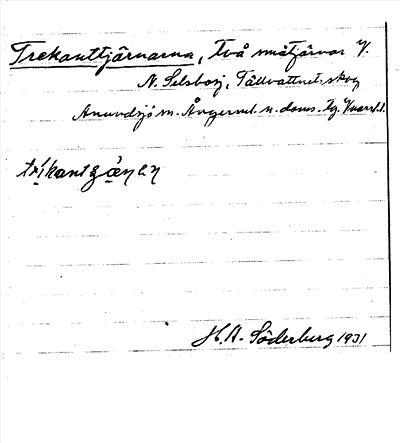 Trekanttjärnarna, två småtjärnar V.
N. Selsborg, Tällvattnets skog
Anundsjö sn. Ångerml. n. doms. tg. Västerl.
H. A. Söderberg 1931